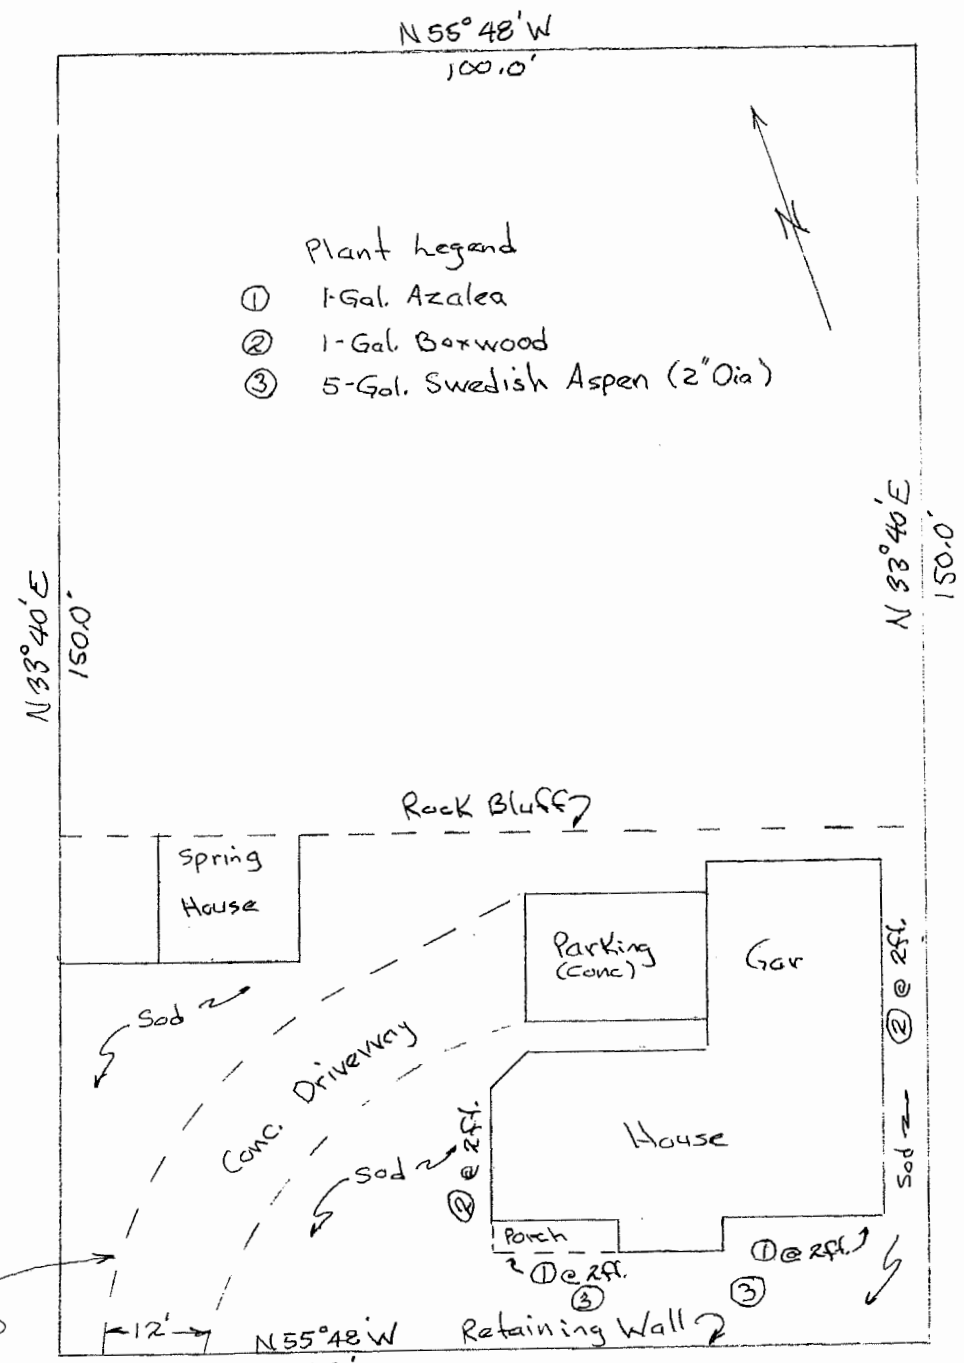 N 55° 48' W
100.0'
Plant Legend
① 1-Gal. Azalea
② 1-Gal. Boxwood
③ 5-Gal. Swedish Aspen (2" Dia)
N
N 33° 40' E
150.0'
N 33° 40' E
150.0'
Rock Bluff
Spring
House
Parking
(Conc)
Gar
② @ 2ft.
Sod
Conc. Driveway
House
② @ 2ft.
Sod
Sod
Porch
① @ 2ft.
① @ 2ft.
③
③
12'
N 55° 48' W
Retaining Wall